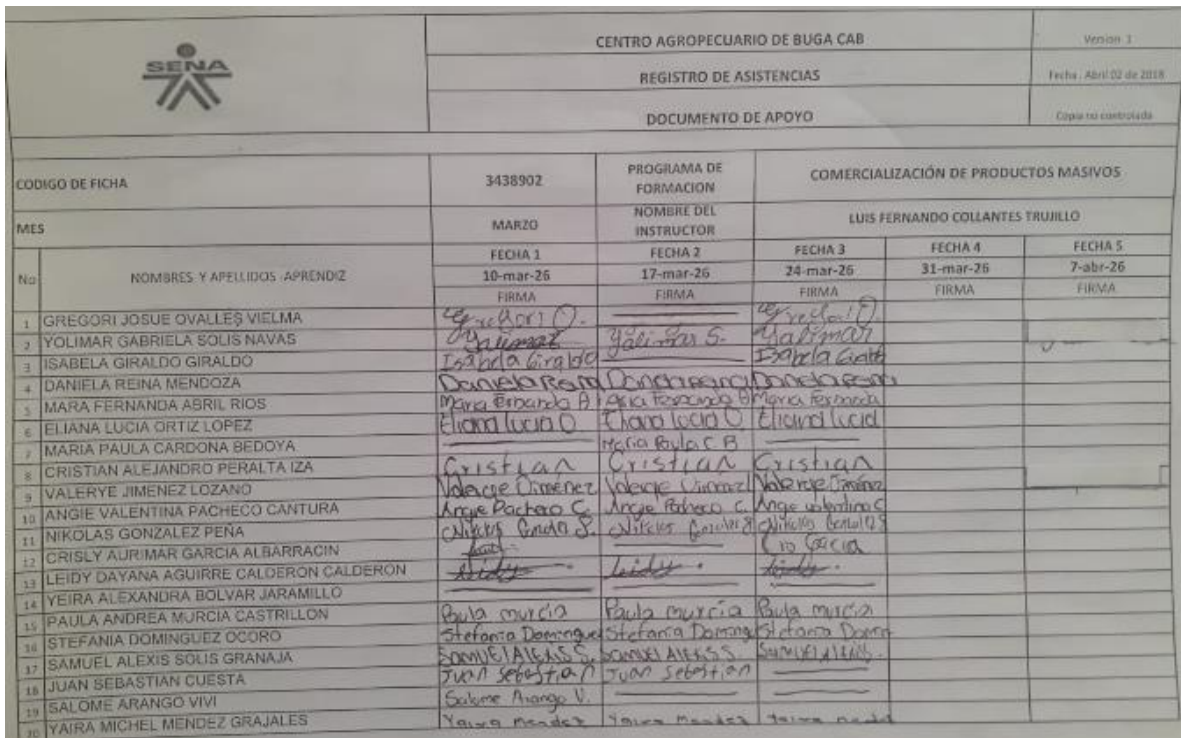 SENA
CENTRO AGROPECUARIO DE BUGA CAB
Version 1
REGISTRO DE ASISTENCIAS
Fecha : Abril 02 de 2018
DOCUMENTO DE APOYO
Copia no controlada
CODIGO DE FICHA 3438902 PROGRAMA DE FORMACION COMERCIALIZACIÓN DE PRODUCTOS MASIVOS
MES MARZO NOMBRE DEL INSTRUCTOR LUIS FERNANDO COLLANTES TRUJILLO
No NOMBRES Y APELLIDOS APRENDIZ
FECHA 1 FECHA 2 FECHA 3 FECHA 4 FECHA 5
10-mar-26 17-mar-26 24-mar-26 31-mar-26 7-abr-26
FIRMA FIRMA FIRMA FIRMA FIRMA
1 GREGORI JOSUE OVALLES VIELMA Gregori O.
2 YOLIMAR GABRIELA SOLIS NAVAS Yolimar Yolimar S. Yolimar
3 ISABELA GIRALDO GIRALDO Isabela Giraldo Isabela
4 DANIELA REINA MENDOZA Daniela
5 MARA FERNANDA ABRIL RIOS Maria Fernanda A Maria Fernanda
6 ELIANA LUCIA ORTIZ LOPEZ Eliana lucia O Eliana lucia O Eliana lucia
7 MARIA PAULA CARDONA BEDOYA Maria Paula C B
8 CRISTIAN ALEJANDRO PERALTA IZA Cristian Cristian Cristian
9 VALERYE JIMENEZ LOZANO Valerye Jimenez Valerye Jimenez Valerye Jimenez
10 ANGIE VALENTINA PACHECO CANTURA Angie Pacheco C. Angie Pacheco C. Angie valentina C
11 NIKOLAS GONZALEZ PEÑA Nikolas Nikolas Nikolas
12 CRISLY AURIMAR GARCIA ALBARRACIN Garcia
13 LEIDY DAYANA AGUIRRE CALDERON CALDERON leidy Leidy leidy
14 YEIRA ALEXANDRA BOLVAR JARAMILLO
15 PAULA ANDREA MURCIA CASTRILLON Paula murcia Paula murcia Paula murcia
16 STEFANIA DOMINGUEZ OCORO Stefania Dominguez Stefania Stefania
17 SAMUEL ALEXIS SOLIS GRANAJA SAMUEL ALEXIS S. SAMUEL ALEXIS S. SAMUEL ALEXIS.
18 JUAN SEBASTIAN CUESTA Juan Sebastian Juan Sebastian
19 SALOME ARANGO VIVI Salome Arango V.
20 YAIRA MICHEL MENDEZ GRAJALES Yaira Mendez Yaira Mendez Yaira